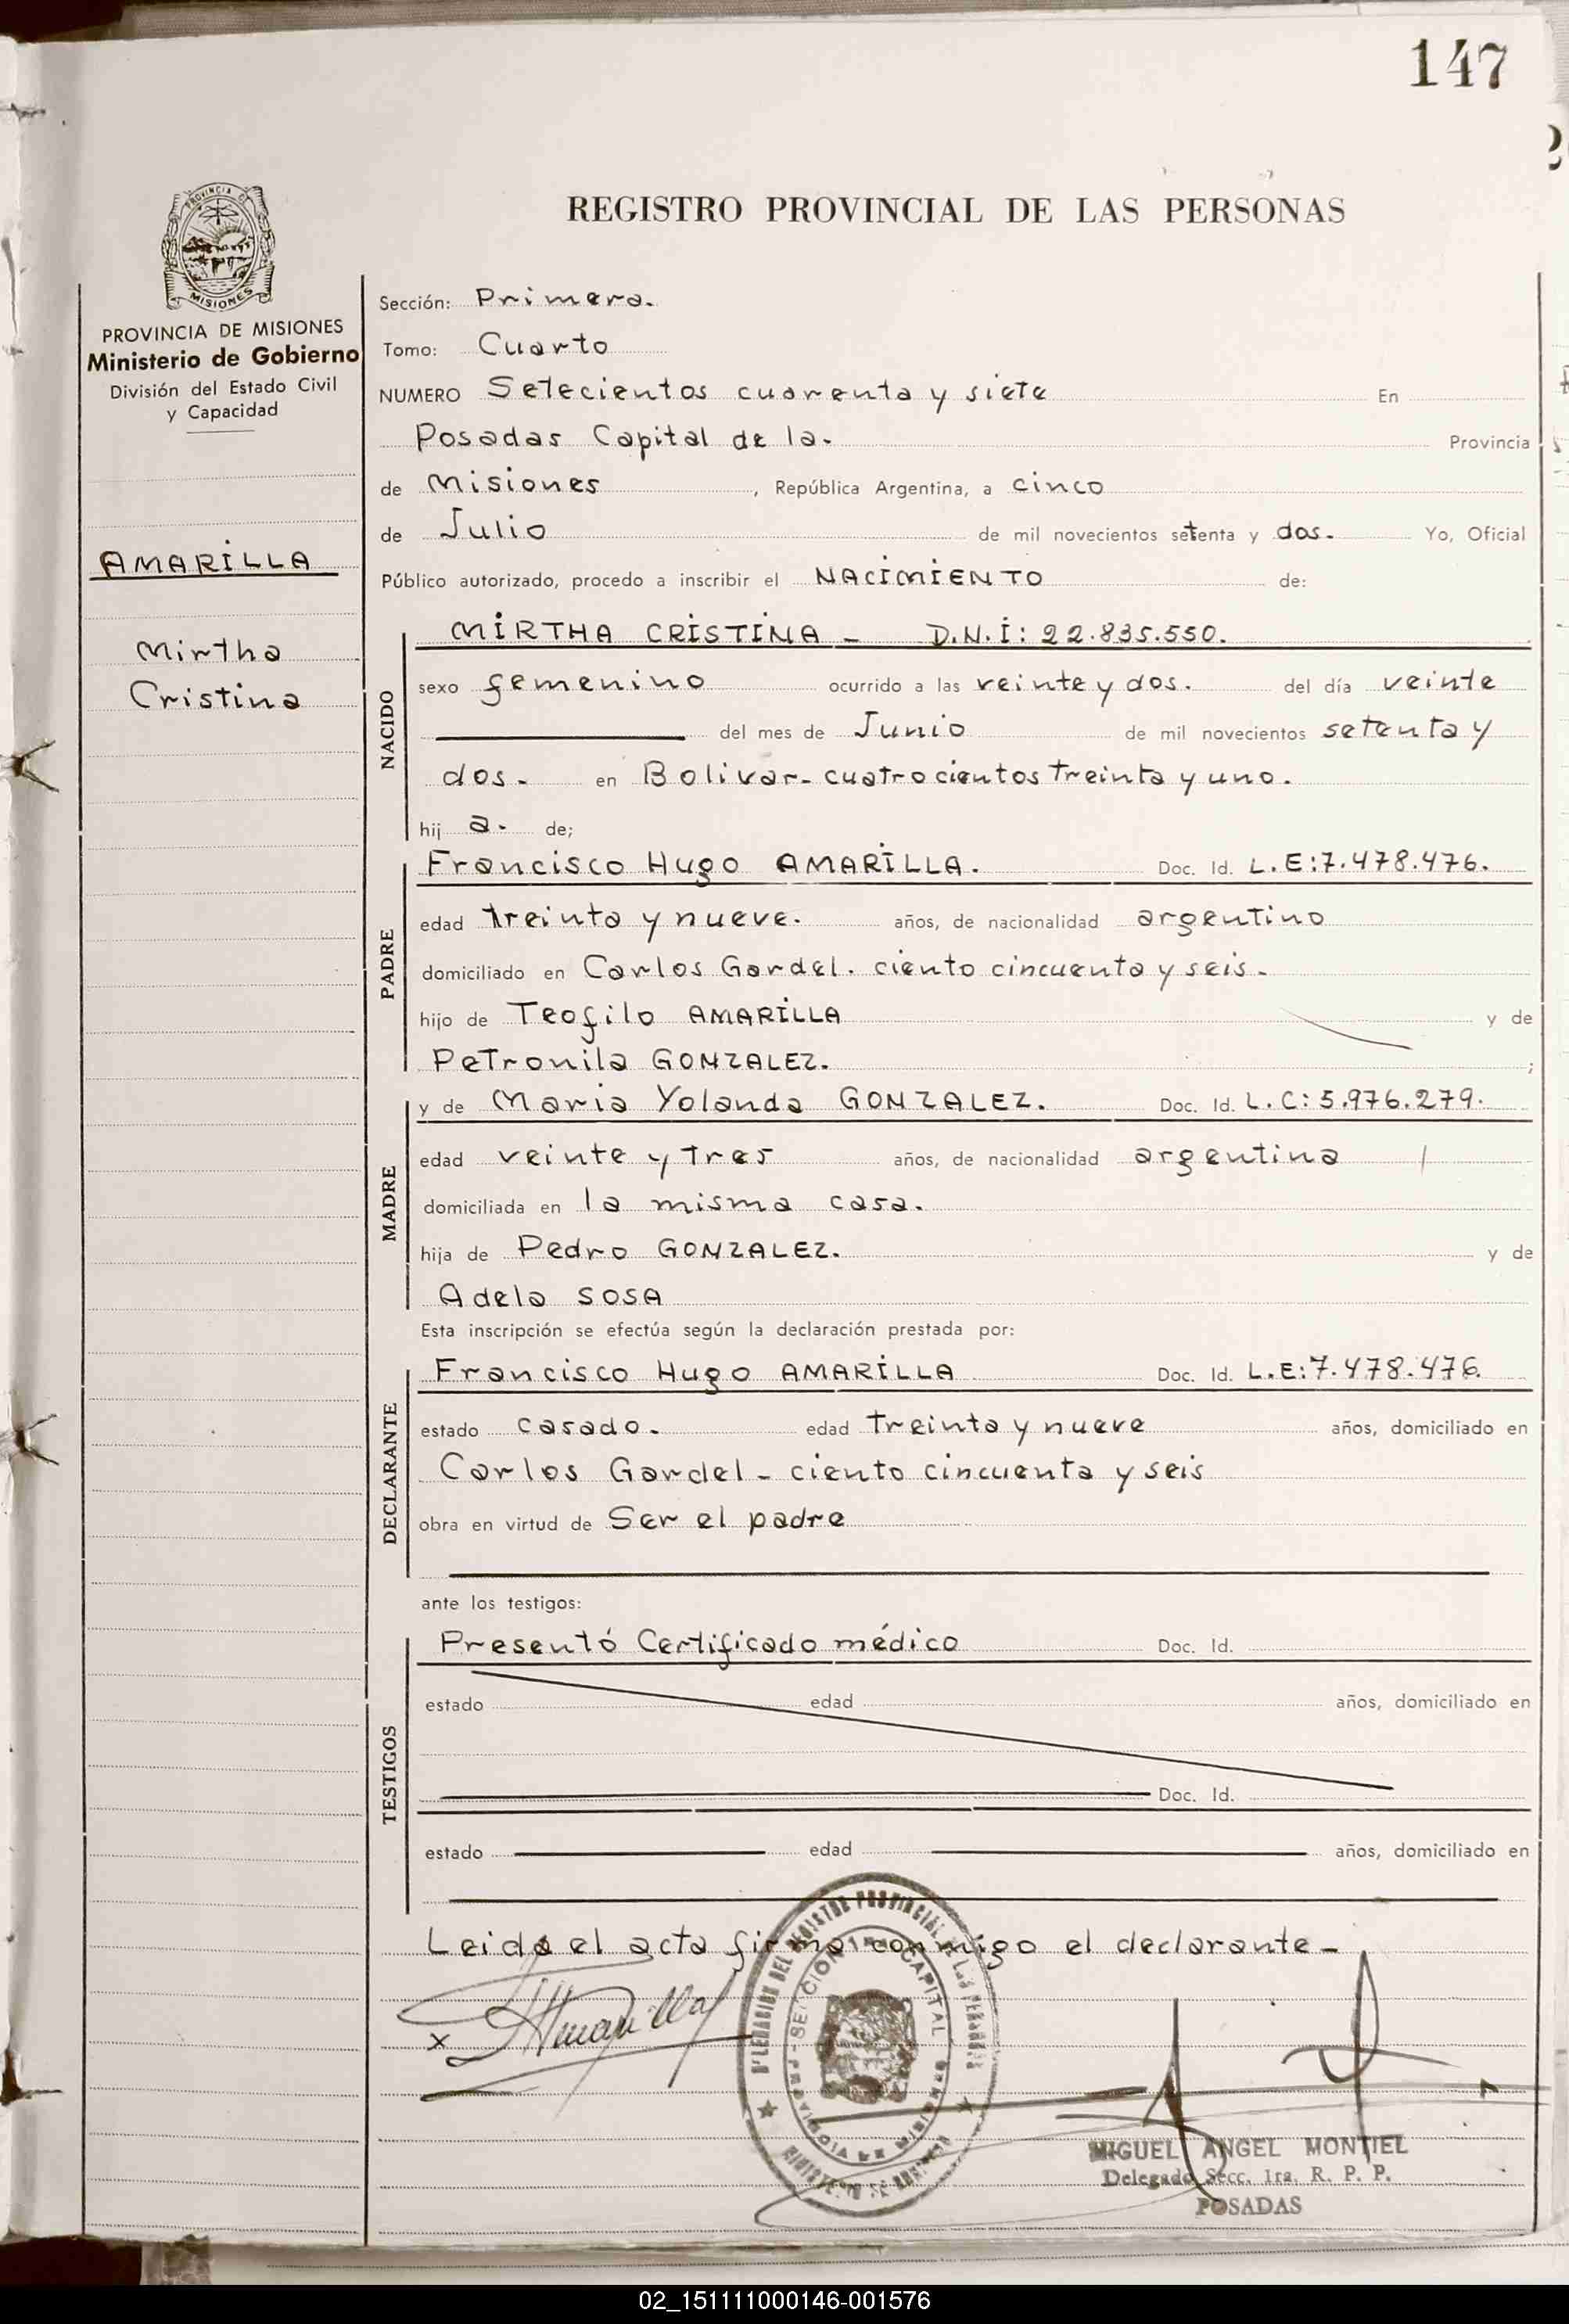 147
REGISTRO PROVINCIAL DE LAS PERSONAS
PROVINCIA DE
MISIONES
PROVINCIA DE MISIONES
Ministerio de Gobierno
División del Estado Civil
y Capacidad
AMARILLA
Mirtha
Cristina
Sección: Primera.
Tomo: Cuarto
NUMERO Setecientos cuarenta y siete En
Posadas Capital de la. Provincia
de Misiones, República Argentina, a cinco
de Julio de mil novecientos setenta y dos. Yo, Oficial
Público autorizado, procedo a inscribir el NACIMIENTO de:
NACIDO
MIRTHA CRISTINA - D.N.I: 22.835.550.
sexo femenino ocurrido a las veinte y dos. del día veinte
del mes de Junio de mil novecientos setenta y
dos. en Bolivar- cuatrocientos treinta y uno.
hij a. de;
PADRE
Francisco Hugo AMARILLA. Doc. Id. L.E:7.478.476.
edad treinta y nueve. años, de nacionalidad argentino
domiciliado en Carlos Gardel. ciento cincuenta y seis.
hijo de Teofilo AMARILLA y de
Petronila GONZALEZ. ;
MADRE
y de Maria Yolanda GONZALEZ. Doc. Id. L.C: 5.976.279.
edad veinte y tres años, de nacionalidad argentina
domiciliada en la misma casa.
hija de Pedro GONZALEZ. y de
Adela SOSA
Esta inscripción se efectúa según la declaración prestada por:
DECLARANTE
Francisco Hugo AMARILLA Doc. Id. L.E:7.478.476.
estado casado. edad treinta y nueve años, domiciliado en
Carlos Gardel - ciento cincuenta y seis
obra en virtud de Ser el padre
ante los testigos:
TESTIGOS
Presentó Certificado médico Doc. Id.
estado edad años, domiciliado en
Doc. Id.
estado edad años, domiciliado en
Leida el acta firma conmigo el declarante-
x Amarilla
DELEGACION DEL REGISTRO PROVINCIAL DE LAS PERSONAS
SECCION 1ra CAPITAL
PROVINCIA DE MISIONES
MINISTERIO DE GOBIERNO
MIGUEL ANGEL MONTIEL
Delegado Secc. 1ra. R. P. P.
POSADAS
02_151111000146-001576